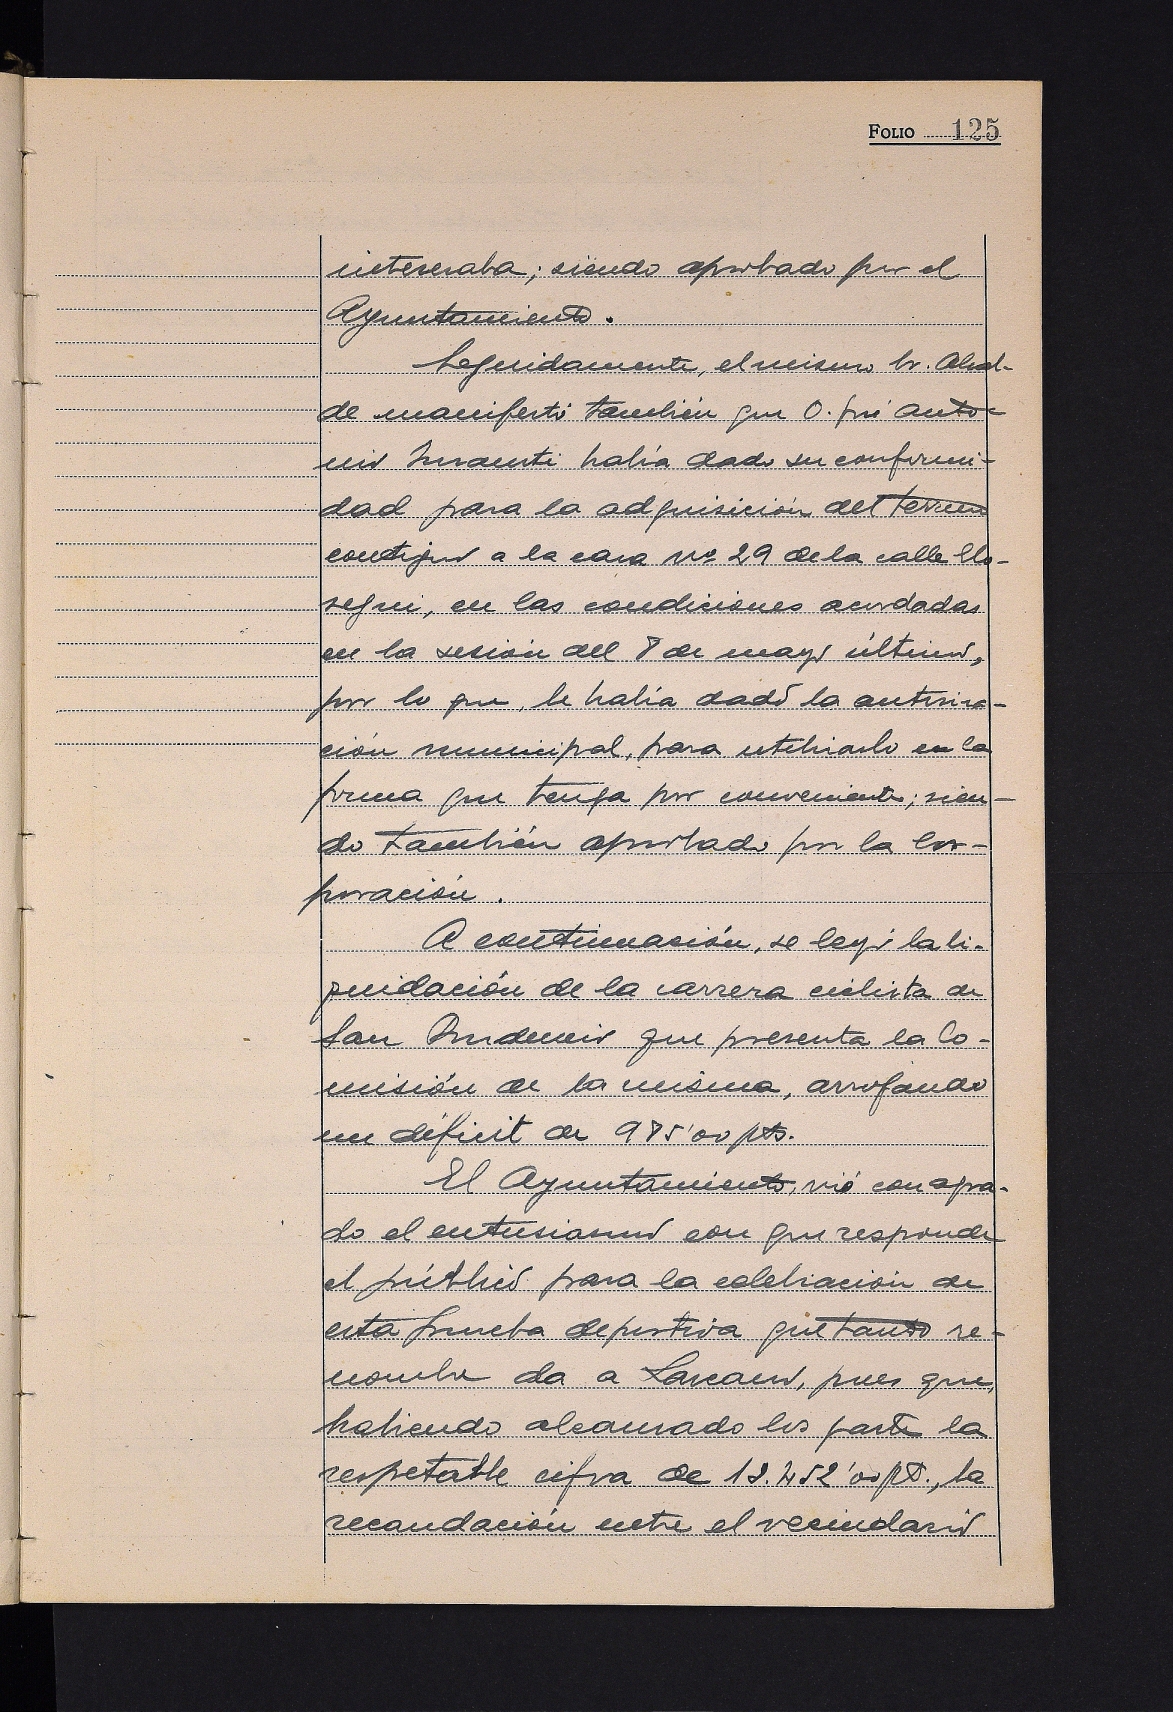 FOLIO 125
interesaba; siendo aprobado por el
Ayuntamiento.
Seguidamente, el mismo Sr. Alcal-
de manifestó también que D. José Anto-
nio había dado su conformi-
dad para la adquisición del terreno
contiguo a la casa nº 29 de la calle Elo-
segui, en las condiciones acordadas
en la sesión del 8 de mayo último,
por lo que, le había dado la autoriza-
ción municipal, para utilizarlo en la
forma que tenga por conveniente; sien-
do también aprobado por la Cor-
poración.
A continuación, se leyó la li-
quidación de la carrera ciclista de
San Prudencio que presenta la Co-
misión de la misma, arrojando
un déficit de 985'00 pts.
El Ayuntamiento, vió con agra-
do el entusiasmo con que responde
el público para la celebración de
esta prueba deportiva que tanto re-
nombre da a Lazcano, pues que,
habiendo alcanzado los gastos la
respetable cifra de 12.452'00 pts., la
recaudación entre el vecindario